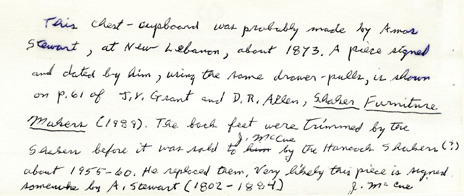 This chest-cupboard was probably made by Amos
Stewart, at New Lebanon, about 1873. A piece signed
and dated by him, using the same drawer-pulls, is shown
on p.61 of J.V. Grant and D.R. Allen, Shaker Furniture
Makers (1989). The back feet were trimmed by the
J. McCue
Shakers before it was sold to him by the Hancock Shakers (?)
about 1955-60. He replaced them. Very likely this piece is signed
somewhere by A. Stewart (1802-1884) J. McCue